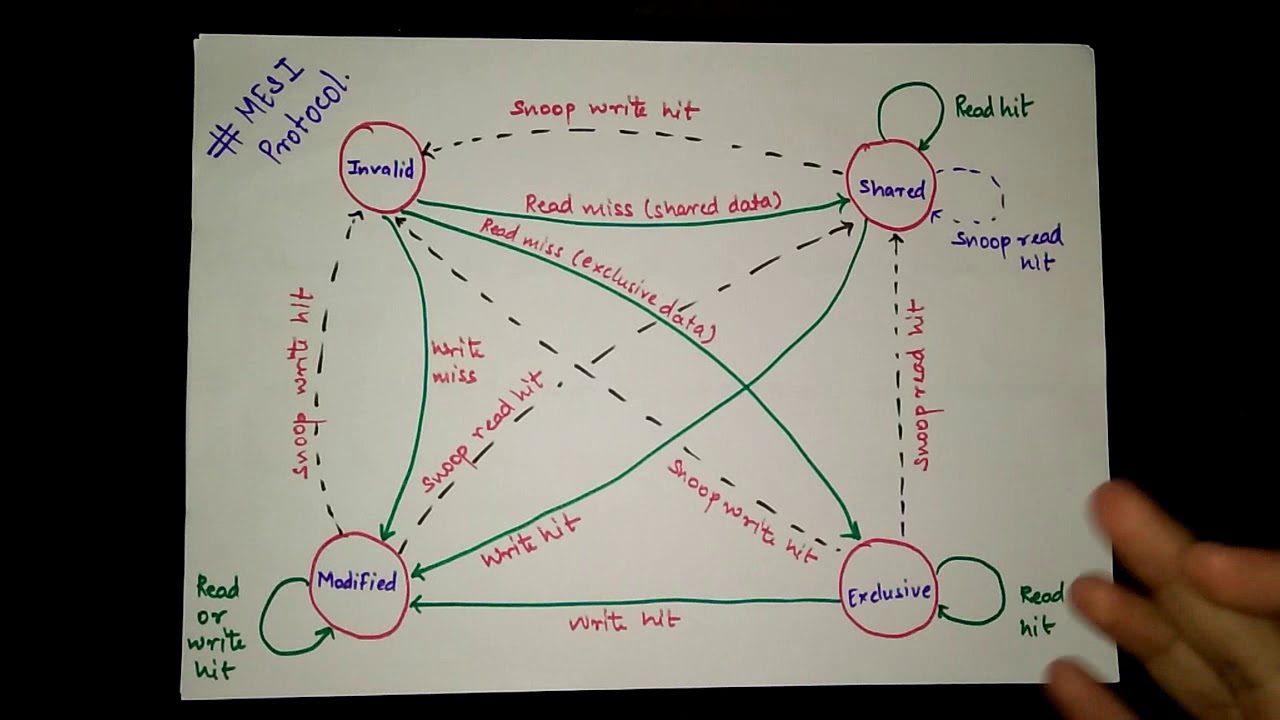 # MESI
Protocol.
Snoop write hit
Read hit
Invalid
Shared
Read miss (shared data)
Read miss (exclusive data)
Snoop read
hit
Snoop write hit
Write
miss
Snoop read hit
Snoop read hit
Snoop write hit
Write hit
Modified
Exclusive
Read
or
write
hit
Write hit
Read
hit